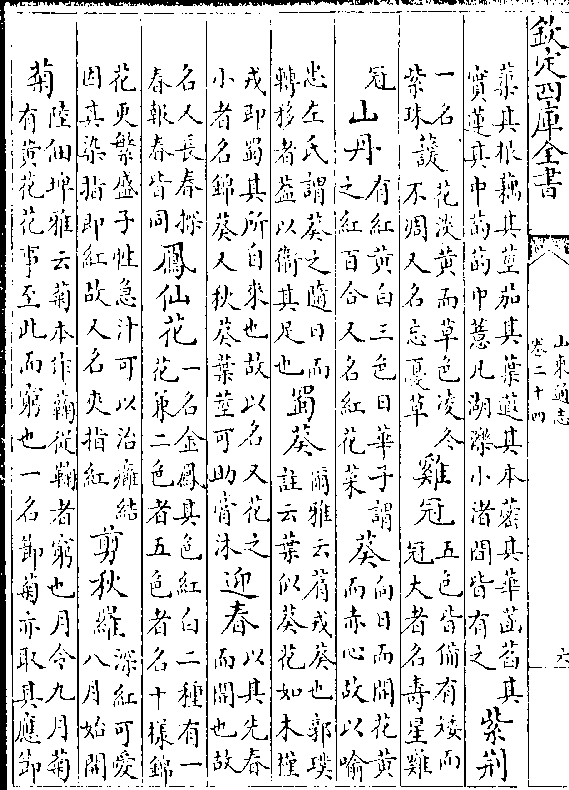 欽定四庫全書
山東通志
卷二十四
六
蕖其根藕其莖茄其葉蕸其本蔤其華菡萏其
實蓮其中菂菂中薏凡湖濼小渚間皆有之
紫荆
一名
紫珠
萲
花淡黃而草色凌冬
不凋又名忘憂草
雞冠
五色皆備有矮而
冠大者名壽星雞
冠
山丹
有紅黃白三色日華子謂
之紅百合又名紅花菜
葵
向日而開花黃
而赤心故以喻
忠左氏謂葵之隨日而
轉移者葢以衛其足也
蜀葵
爾雅云菺戎葵也郭璞
註云葉似葵花如木槿
戎即蜀其所自來也故以名又花之
小者名錦葵又秋葵葉莖可助膏沐
迎春
以其先春
而開也故
名又長春探
春報春皆同
鳳仙花
一名金鳳其色紅白二種有一
花兼二色者五色者名十様錦
花更繁盛子性急汁可以治癰結
因其染指即紅故又名夾指紅
剪秋羅
深紅可愛
八月始開
菊
陸佃埤雅云菊本作蘜從鞠者窮也月令九月菊
有黃花花事至此而窮也一名節菊亦取其應節